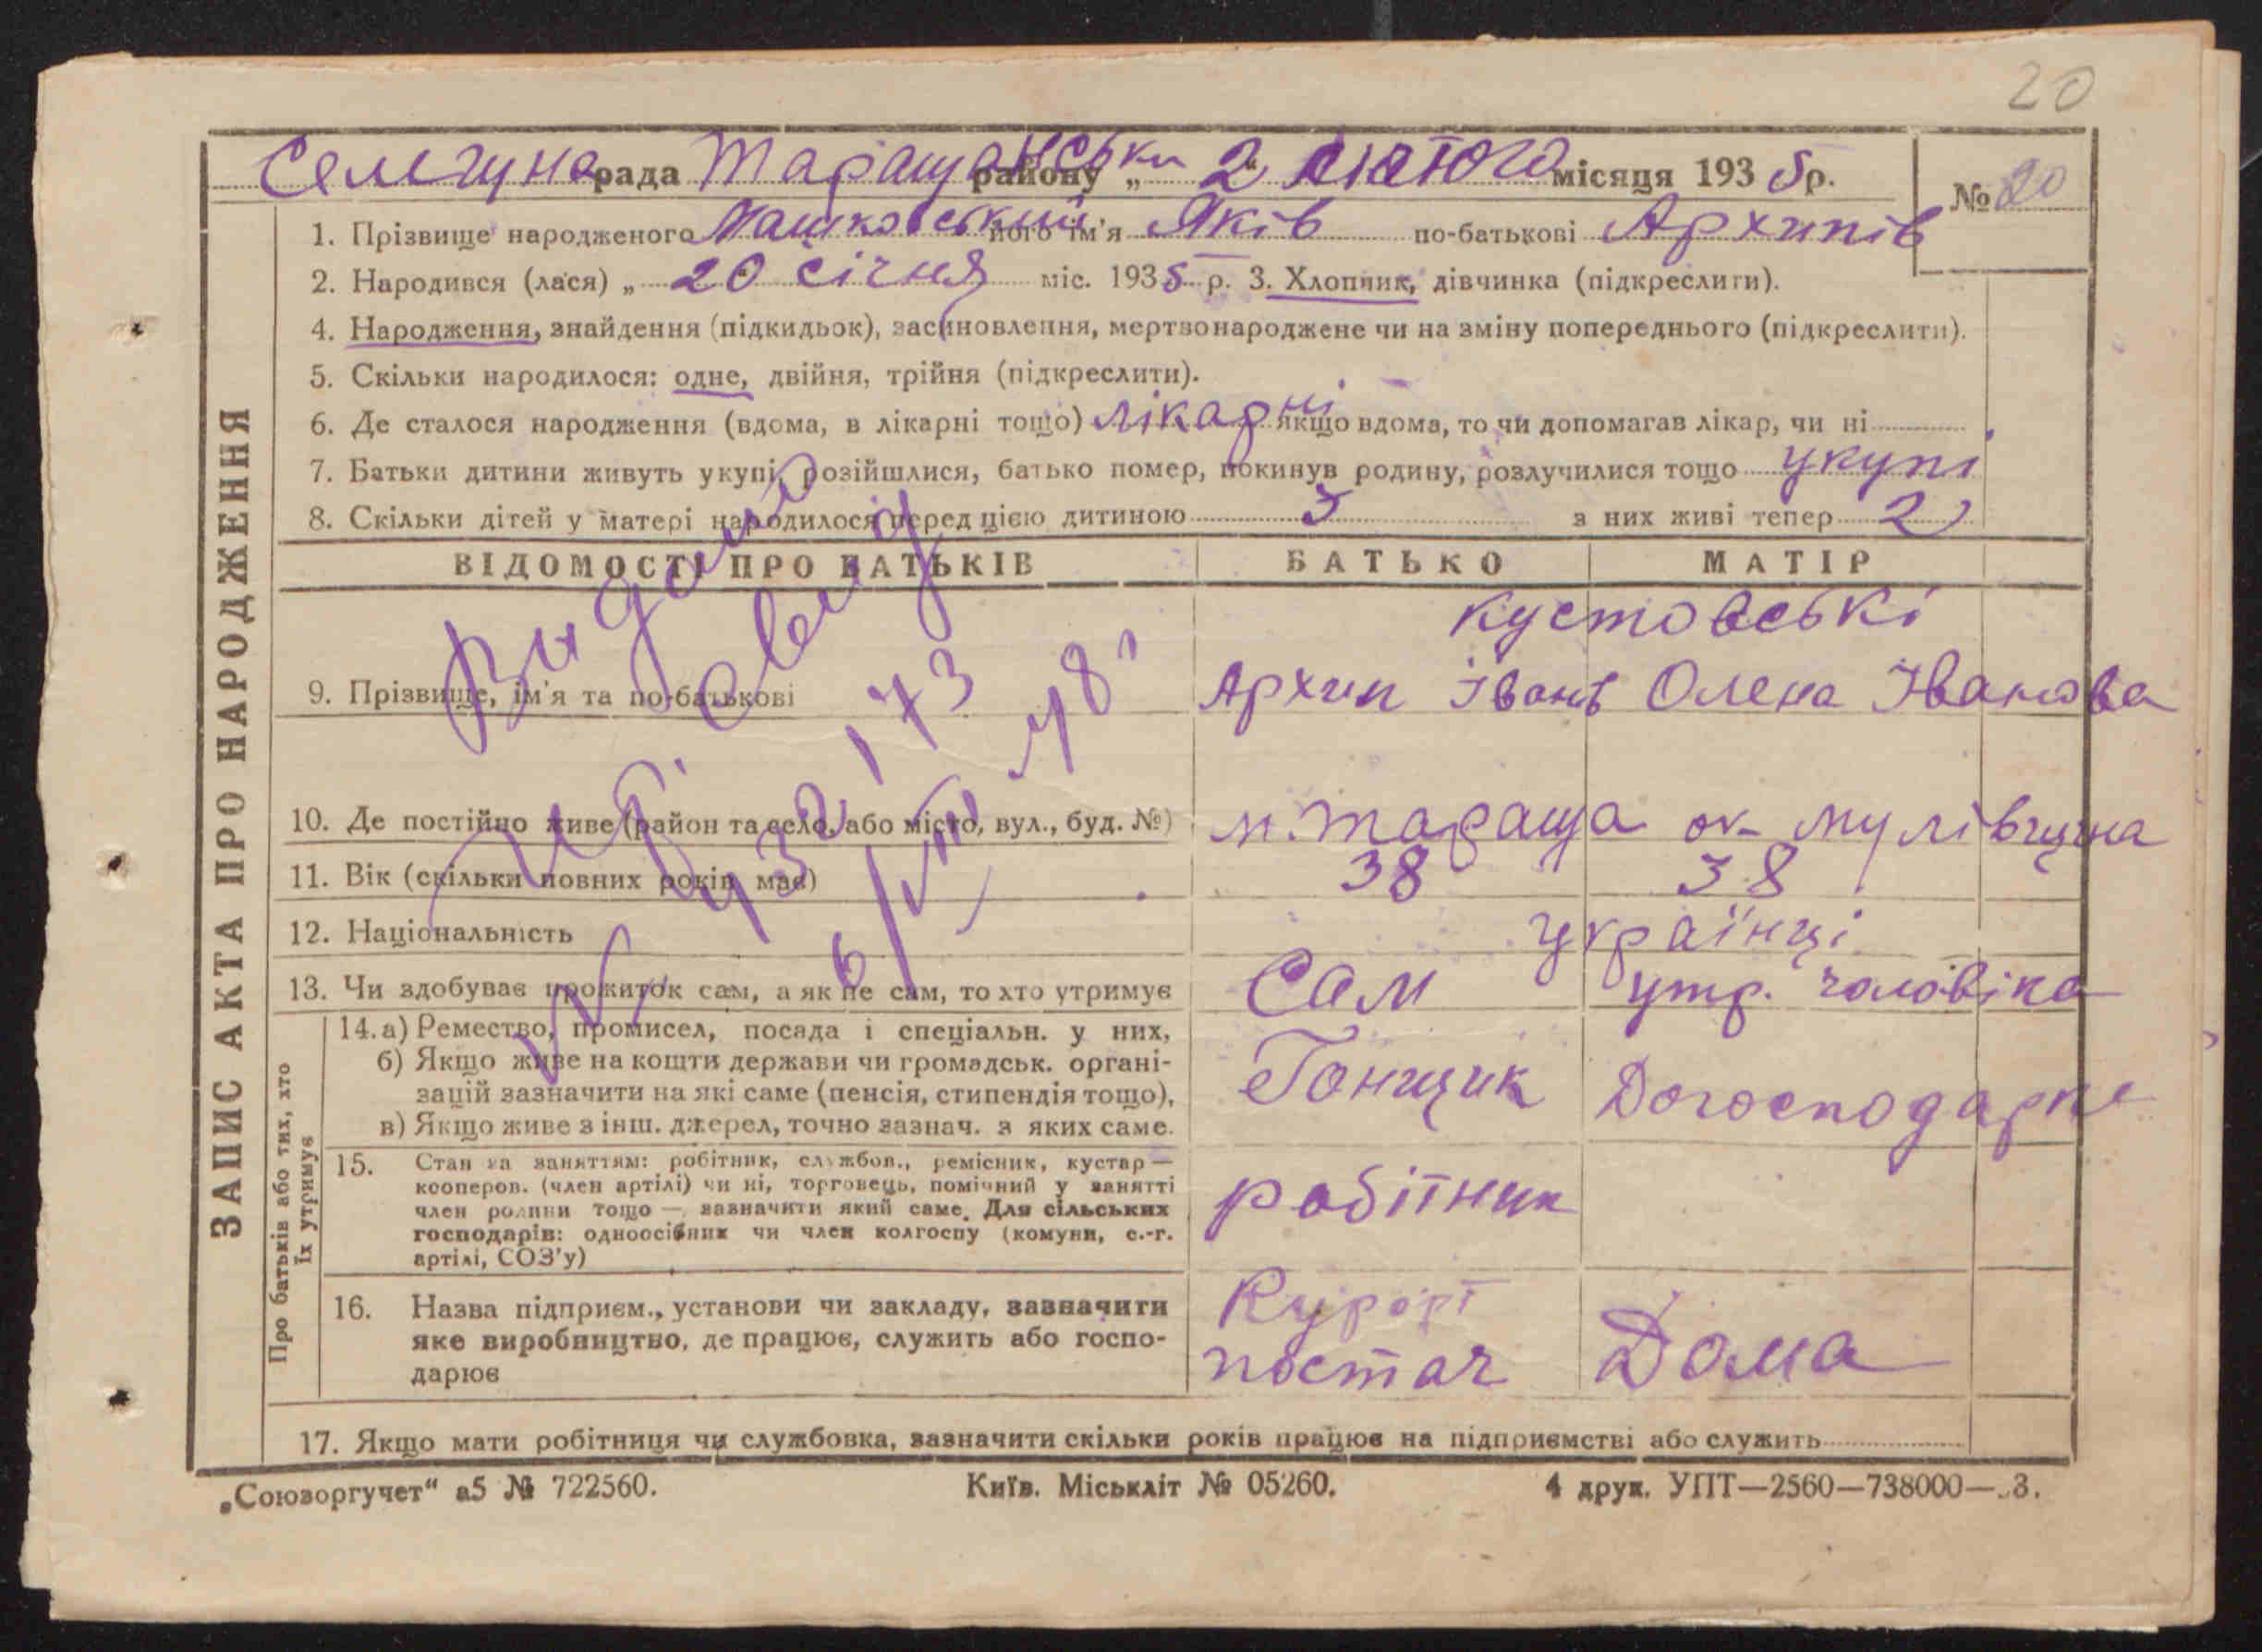 20
Селищна рада Таращанськи району „2" лютого місяця 1935 р. № 20
1. Прізвище народженого Машковський його ім'я Яків по-батькові Архипів
2. Народився (лася) „20" січня міс. 1935 р. 3. Хлопчик, дівчинка (підкреслити).
4. Народження, знайдення (підкидьок), засиновлення, мертвонароджене чи на зміну попереднього (підкреслити).
5. Скільки народилося: одне, двійня, трійня (підкреслити).
6. Де сталося народження (вдома, в лікарні тощо) лікарні якщо вдома, то чи допомагав лікар, чи ні
7. Батьки дитини живуть укупі, розійшлися, батько помер, покинув родину, розлучилися тощо укупі
8. Скільки дітей у матері народилося перед цією дитиною 3 з них живі тепер 2
ЗАПИС АКТА ПРО НАРОДЖЕННЯ
ВІДОМОСТІ ПРО БАТЬКІВ БАТЬКО МАТІР
Кустовські
9. Прізвище, ім'я та по-батькові Архип Іванів Олена Іванова
10. Де постійно живе (район та село, або місто, вул., буд. №) м. Тараща ок. Мулівщина
11. Вік (скільки повних років має) 38 38
12. Національність українці
13. Чи здобуває прожиток сам, а як не сам, то хто утримує Сам утр. чоловіка
Про батьків або тих, хто їх утримує
14. а) Ремество, промисел, посада і спеціальн. у них,
б) Якщо живе на кошти держави чи громадськ. органі-
зацій зазначити на які саме (пенсія, стипендія тощо),
в) Якщо живе з інш. джерел, точно зазнач. з яких саме.
Гонщик Догосподарке
15. Стан за заняттям: робітник, службов., ремісник, кустар —
кооперов. (член артілі) чи ні, торговець, помічний у занятті
член родини тощо — зазначити який саме. Для сільських
господарів: одноосібник чи член колгоспу (комуни, с.-г.
артілі, СОЗ'у)
робітник
16. Назва підприєм., установи чи закладу, зазначити
яке виробництво, де працює, служить або госпо-
дарює
Курорт
постач Дома
17. Якщо мати робітниця чи службовка, зазначити скільки років працює на підприємстві або служить
Видано
свід
432173
6/VIII 48
„Союзоргучет" а5 № 722560. Київ. Міськліт № 05260. 4 друк. УПТ—2560—738000—